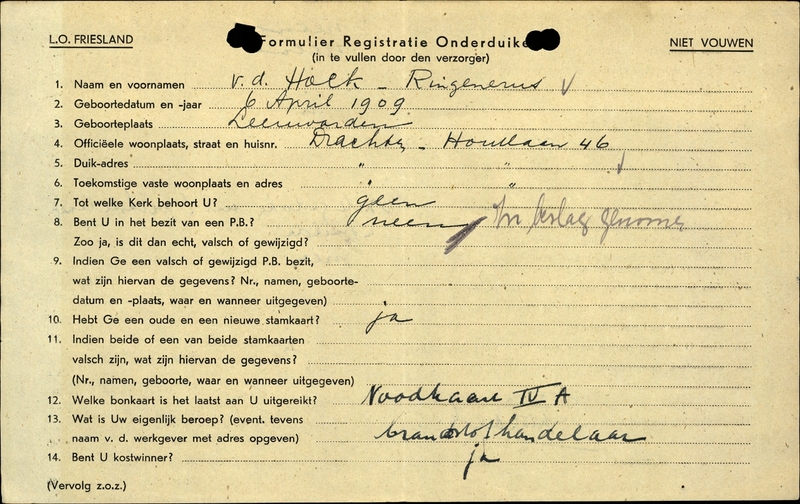 L.O. FRIESLAND
Formulier Registratie Onderduike
NIET VOUWEN
(in te vullen door den verzorger)
1. Naam en voornamen v. d. Hoek - 
2. Geboortedatum en -jaar 6 April 1909
3. Geboorteplaats Leeuwarden
4. Officiëele woonplaats, straat en huisnr. Drachten - Houtlaan 46
5. Duik-adres " "
6. Toekomstige vaste woonplaats en adres " "
7. Tot welke Kerk behoort U? geen
8. Bent U in het bezit van een P.B.? neen In beslag genomen
Zoo ja, is dit dan echt, valsch of gewijzigd?
9. Indien Ge een valsch of gewijzigd P.B. bezit,
wat zijn hiervan de gegevens? Nr., namen, geboorte-
datum en -plaats, waar en wanneer uitgegeven)
10. Hebt Ge een oude en een nieuwe stamkaart? ja
11. Indien beide of een van beide stamkaarten
valsch zijn, wat zijn hiervan de gegevens?
(Nr., namen, geboorte, waar en wanneer uitgegeven)
12. Welke bonkaart is het laatst aan U uitgereikt? Noodkaart IV A
13. Wat is Uw eigenlijk beroep? (event. tevens
naam v. d. werkgever met adres opgeven) brandstofhandelaar
14. Bent U kostwinner? ja
(Vervolg z.o.z.)